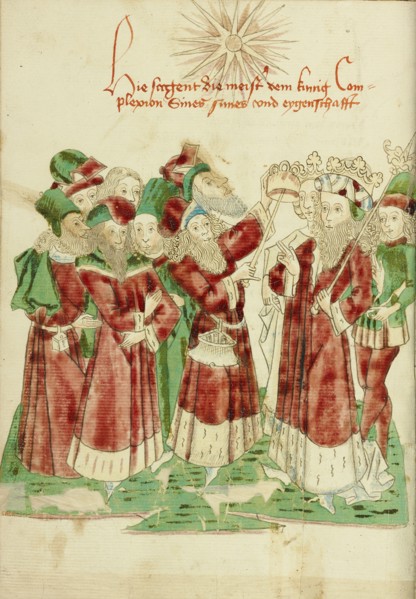 Hie sagent die meist' dem künig Com=
plexion Sines sunes vnd eygenschafft